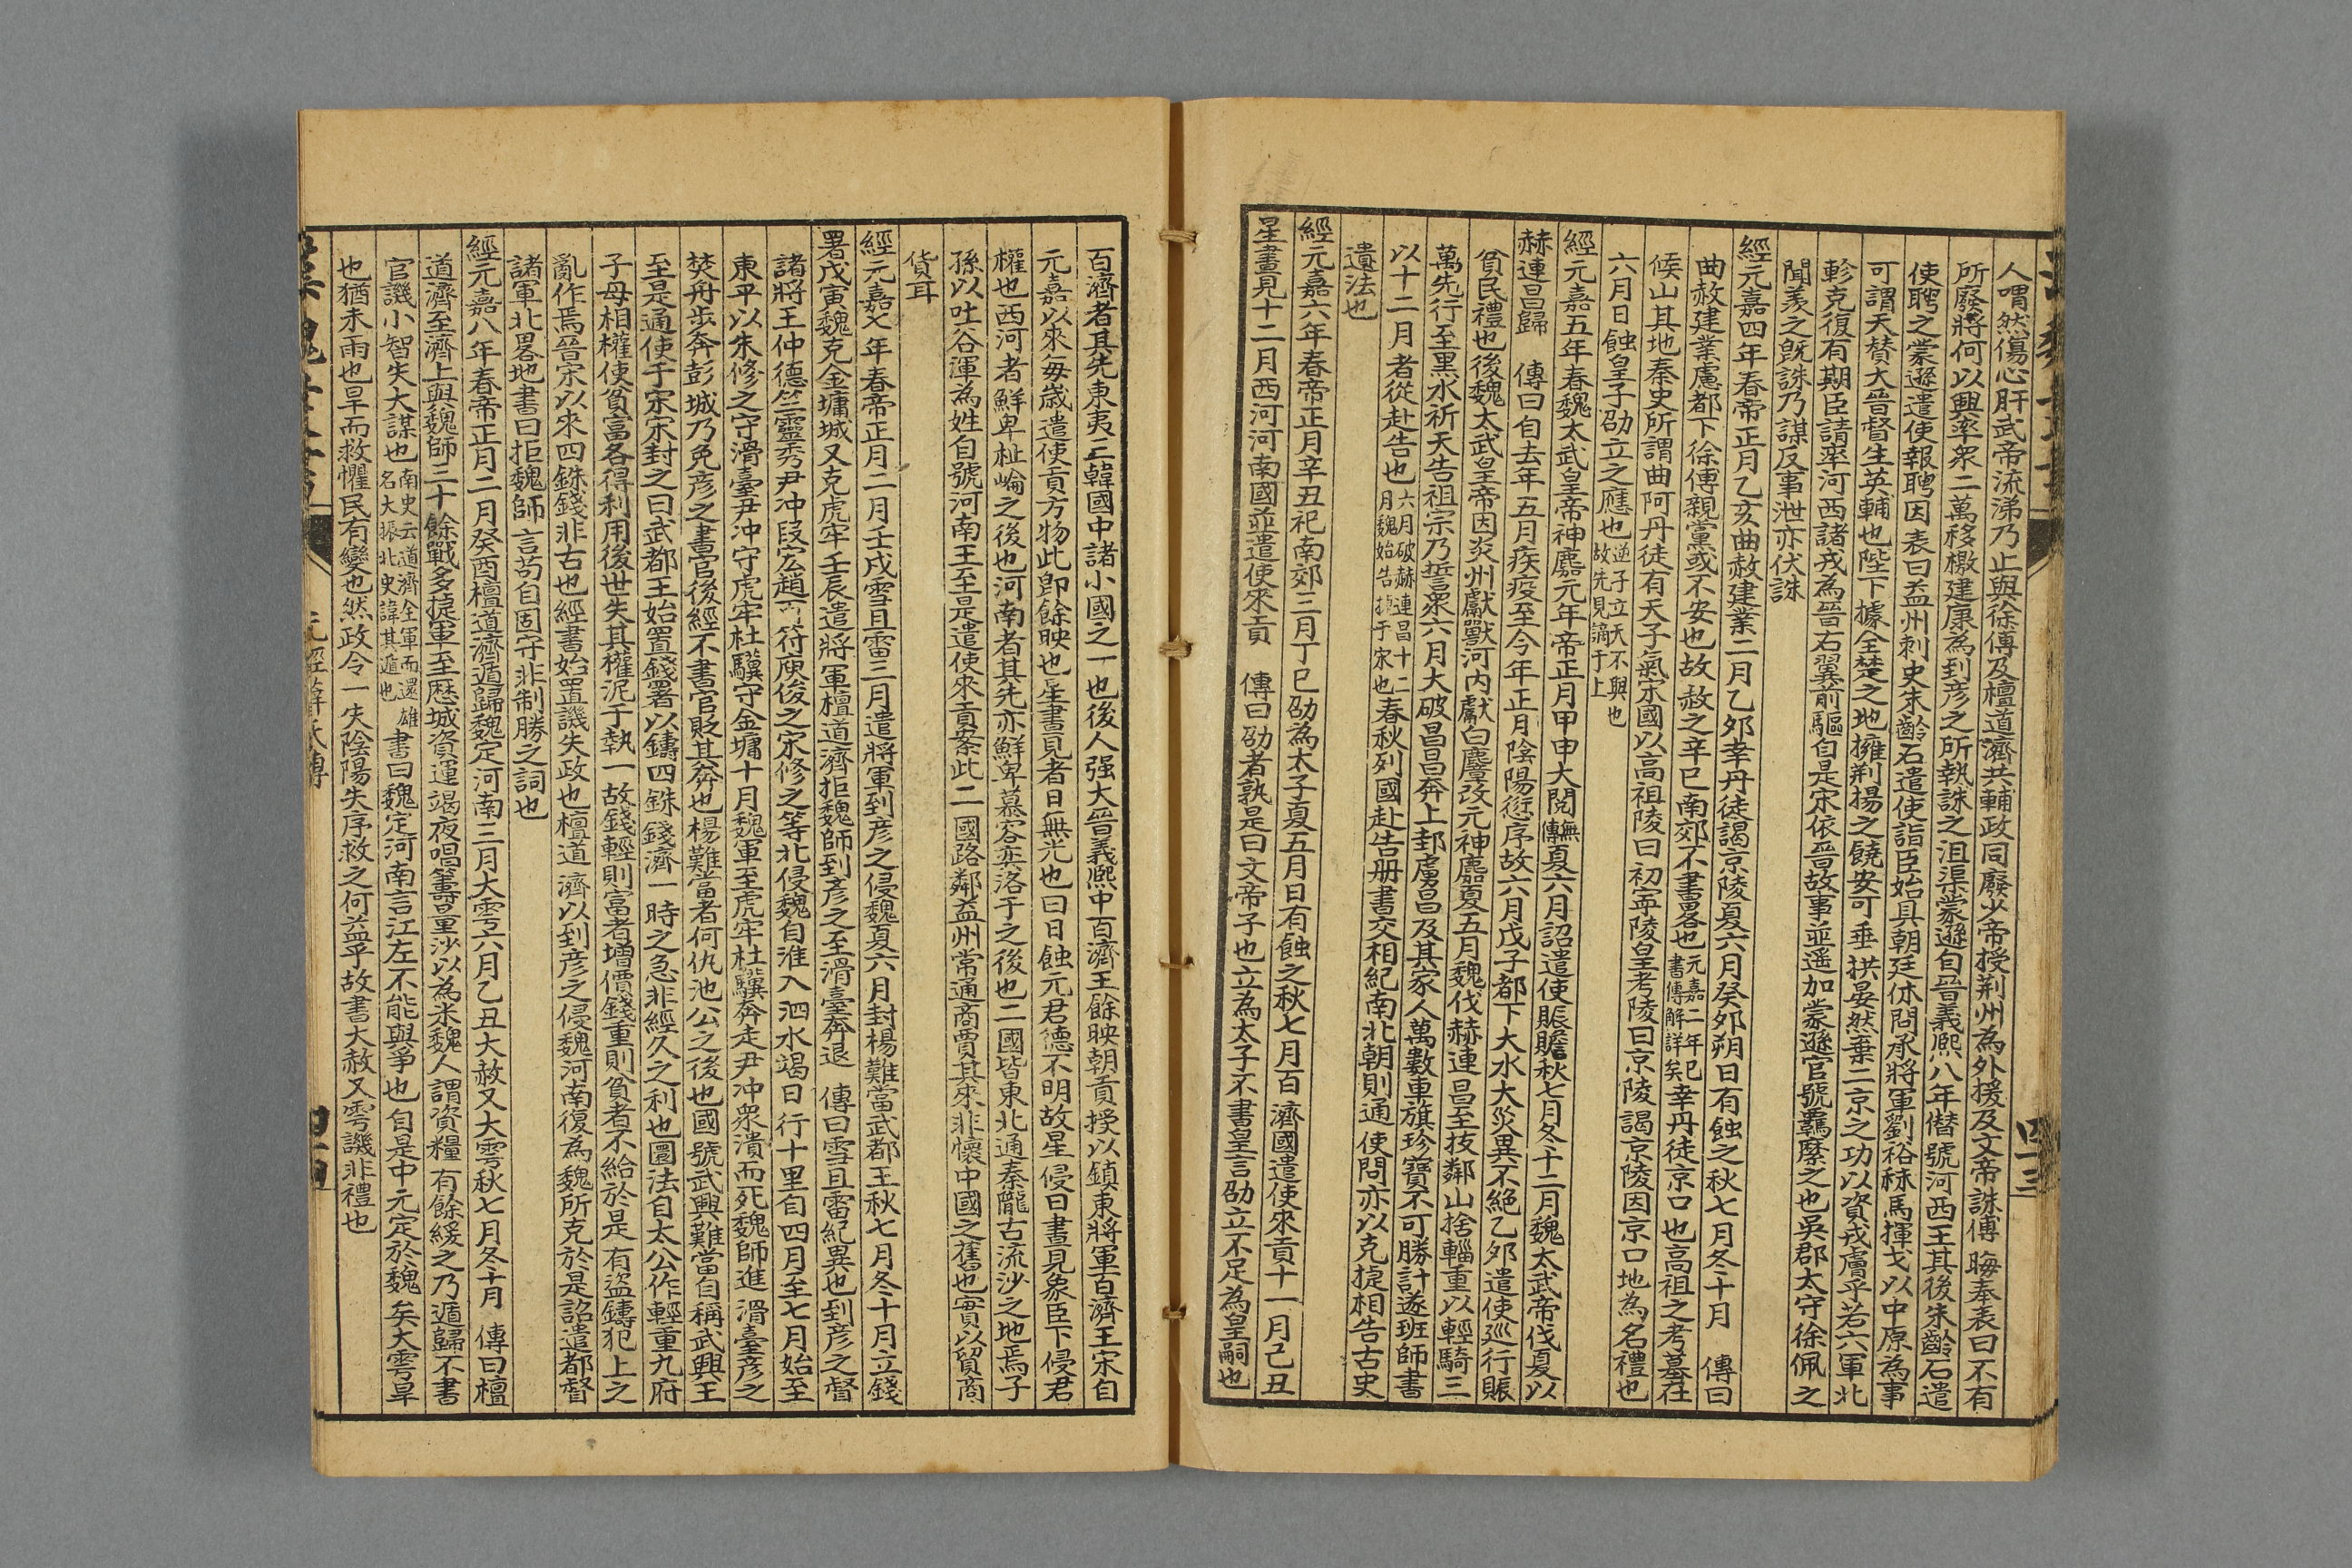 人喟然傷心肝武帝流涕乃止與徐傳及檀道濟共輔政同廢少帝授荆州為外援及文帝誅傅晦奉表曰不有
所廢將何以興率衆二萬移檄建康為到彦之所執誅之沮渠蒙遜自晉義熙八年僣號河西王其後朱齡石遣
使聘之蒙遜遣使報聘因表曰益州刺史朱齡石遣使詣臣始具朝廷休問承將軍劉裕秣馬揮戈以中原為事
可謂天贊大晉督生英輔也陛下據全楚之地擁荆揚之饒安可垂拱晏然棄二京之功以資戎虜乎若六軍北
軫克復有期臣請率河西諸戎為晉右翼前驅自是宋依晉故事並遥加蒙遜官號羈縻之也吳郡太守徐佩之
聞羡之旣誅乃謀反事泄亦伏誅
經元嘉四年春帝正月乙亥曲赦建業二月乙夘幸丹徒謁京陵夏六月癸夘朔日有蝕之秋七月冬十月 傳曰
曲赦建業慮都下徐傅親黨或不安也故赦之辛巳南郊不書畧也元嘉二年巳書傳解詳矣幸丹徒京口也高祖之考墓在
候山其地秦史所謂曲阿丹徒有天子氣宋國以高祖陵曰初寧陵皇考陵曰京陵謁京陵因京口地為名禮也
六月日蝕皇子劭立之應也逆子立天不與也故先見謫于上
經元嘉五年春魏太武皇帝神䴥元年帝正月甲申大閱無傳夏六月詔遣使賑贍秋七月冬十二月魏太武帝伐夏以
赫連昌歸 傳曰自去年五月疾疫至今年正月陰陽愆序故六月戊子都下大水大災異不絕乙夘遣使廵行賑
貧民禮也後魏太武皇帝因炎州獻獸河内獻白麞改元神䴥夏五月魏伐赫連昌至技鄰山捨輜重以輕騎三
萬先行至黑水祈天告祖宗乃誓衆六月大破昌昌奔上邽虜昌及其家人萬數車旗珍寶不可勝計遂班師書
以十二月者從赴告也六月破赫連昌十二月魏始告捷于宋也春秋列國赴告册書交相紀南北朝則通使問亦以克捷相告古史
遺法也
經元嘉六年春帝正月辛丑祀南郊三月丁巳劭為太子夏五月日有蝕之秋七月百濟國遣使來貢十一月己丑
星晝見十二月西河河南國並遣使來貢 傳曰劭者孰是曰文帝子也立為太子不書皇言劭立不足為皇嗣也
百濟者其先東夷三韓國中諸小國之一也後人强大晉義熙中百濟王餘映朝貢授以鎮東將軍百濟王宋自
元嘉以來每歲遣使貢方物此卽餘映也星晝見者日無光也曰日蝕元君德不明故星侵日晝見象臣下侵君
權也西河者鮮卑杫崘之後也河南者其先亦鮮卑慕容弈洛于之後也二國皆東北通秦隴古流沙之地焉子
孫以吐谷渾為姓自號河南王至是遣使來貢案此二國路鄰益州常通商賈其來非懷中國之舊也實以貿商
貨耳
經元嘉七年春帝正月二月壬戌雪且雷三月遣將軍到彦之侵魏夏六月封楊難當武都王秋七月冬十月立錢
署戊寅魏克金墉城又克虎牢壬辰遣將軍檀道濟拒魏師到彦之至滑臺奔退 傳曰雪且雷紀異也到彦之督
諸將王仲德竺靈秀尹冲段宏趙符庾俊之宋修之等北侵魏自淮入泗水竭日行十里自四月至七月始至
東平以朱修之守滑臺尹冲守虎牢杜驥守金墉十月魏軍至虎牢杜驥奔走尹冲衆潰而死魏師進滑臺彦之
焚舟步奔彭城乃免彦之書官後經不書官貶其奔也楊難當者何仇池公之後也國號武興難當自稱武興王
至是通使于宋宋封之曰武都王始置錢署以鑄四銖錢濟一時之急非經久之利也圜法自太公作輕重九府
子母相權使貧富各得利用後世失其權泥于執一故錢輕則富者增價錢重則貧者不給於是有盜鑄犯上之
亂作焉晉宋以來四銖錢非古也經書始置譏失政也檀道濟以到彦之侵魏河南復為魏所克於是詔遣都督
諸軍北畧地書曰拒魏師言苟自固守非制勝之詞也
經元嘉八年春帝正月二月癸酉檀道濟遁歸魏定河南三月大雩六月乙丑大赦又大雩秋七月冬十月 傳曰檀
道濟至濟上與魏師三十餘戰多捷軍至歷城資運竭夜唱籌量沙以為米魏人謂資糧有餘緩之乃遁歸不書
官譏小智失大謀也南史云道濟全軍而還雄名大振北史諱其遁也書曰魏定河南言江左不能與爭也自是中元定於魏矣大雩旱
也猶未雨也旱而救懼民有變也然政令一失陰陽失序救之何益乎故書大赦又雩譏非禮也